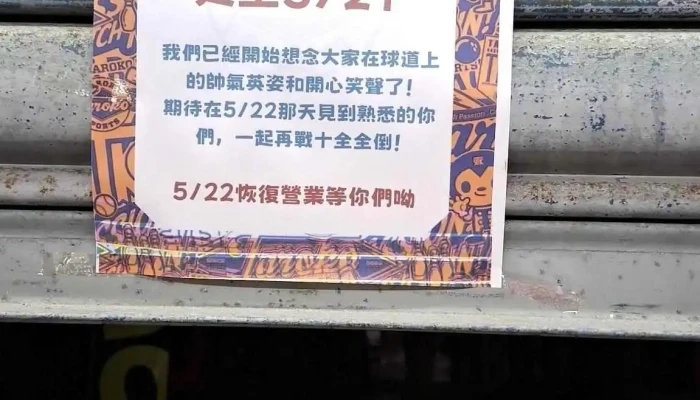 我們已經開始想念大家在球道上
的帥氣英姿和開心笑聲了!
期待在5/22那天見到熟悉的你
們，一起再戰十全全倒!
5/22恢復營業等你們呦